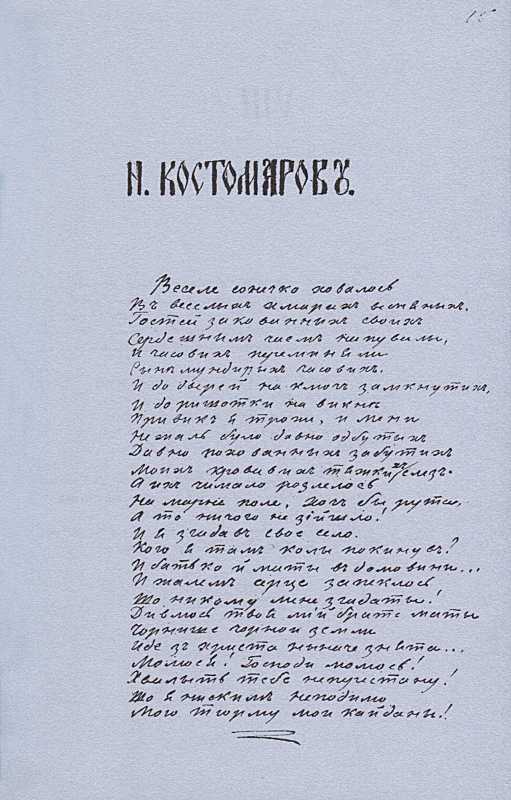 15
Н. КОСТОМАРОВУ.
Веселе сонечко ховалось
Въ веселыхъ хмарахъ весняныхъ.
Гостей закованныхъ своихъ
Сердешнымъ чаемъ напували,
И часовихъ переминяли
Синемундирыхъ часовихъ.
И до дверей на ключъ замкнутихъ,
И до ришотки на викни
Привикъ я трохи, и мени
Не жаль було давно одбутыхъ
Давно похованныхъ забутихъ
Моихъ кровавихъ тяжкихъ слезъ.
А ихъ чимало розлелось
На марне поле. Хочъ бы рута,
А то ничого не зійшло!
И я згадавъ свое село.
Кого я тамъ коли покинувъ?
И батько й маты въ домовини...
И жалемъ серце запеклось
Що никому мене згадаты!
Дивлюсь твоя мій брате маты
Чорнише чорнои земли
Иде зъ христа ниначе знята...
Молюся! Господи молюсь!
Хвалыть тебе непучестану!
Що я ни съ кимъ неподилю
Мою тюрму мои кайданы!